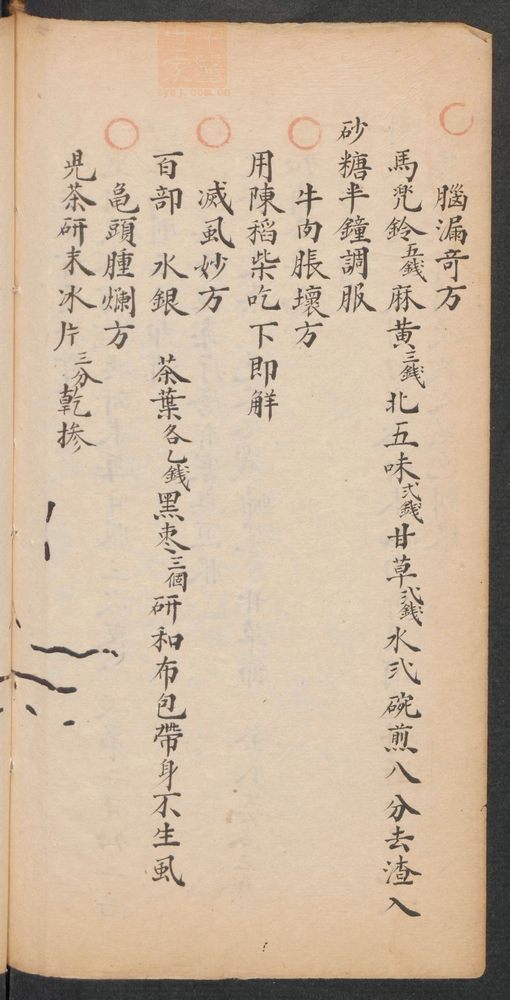 腦漏奇方
馬兜鈴五錢麻黃三錢北五味弍錢甘草弍錢水弍碗煎八分去渣入
砂糖半鐘調服
牛肉脹壞方
用陳稻柴吃下即解
滅虱妙方
百部 水銀 茶葉各乙錢黑枣三個研和布包帶身不生虱
龜頭腫爛方
児茶研末冰片三分乾掺